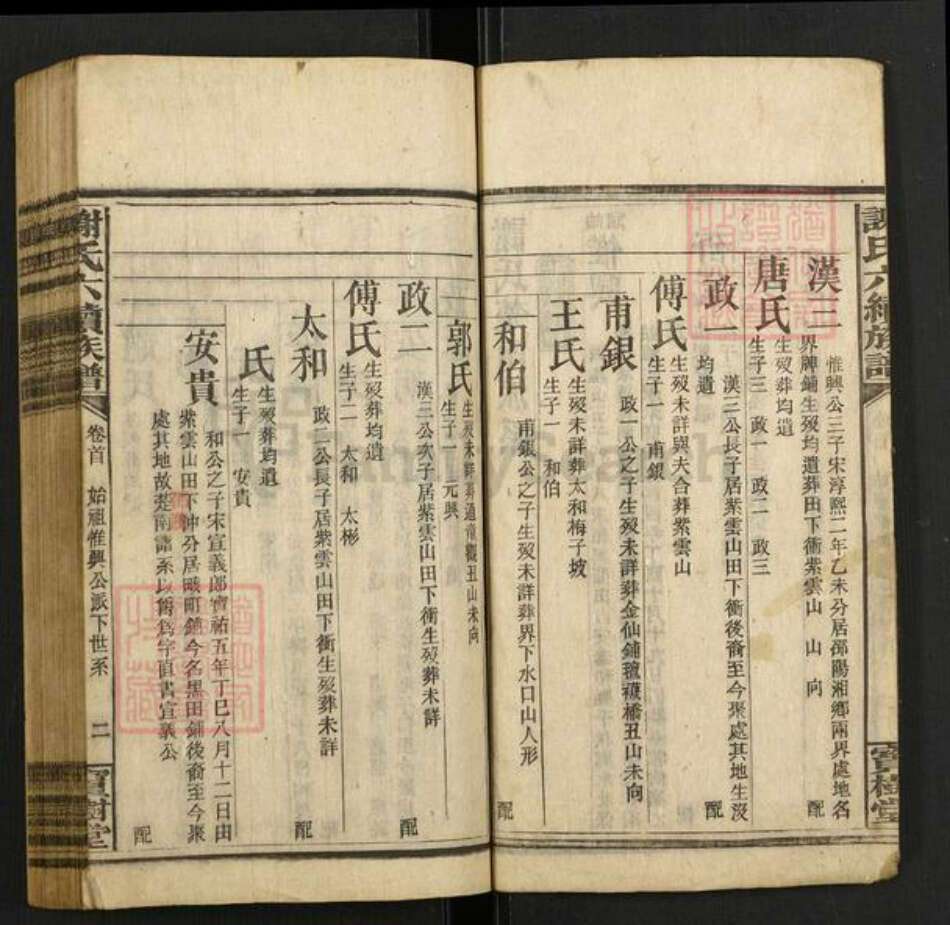 謝氏六續族譜
寶樹堂
漢三
惟興公三子宋淳熙二年乙未分居邵陽湘鄉兩界處地名
界牌鋪生歿均遺葬田下衝紫雲山 山 向
配
唐氏
生歿葬均遺
生子三 政一 政二 政三
政一
漢三公長子居紫雲山田下衝後裔至今聚處其地生沒
均遺
配
傅氏
生歿未詳與夫合葬紫雲山
生子一 甫銀
甫銀
政一公之子生歿未詳葬金仙鋪 橋丑山未向
配
王氏
生歿未詳葬太和梅子坡
生子一 和伯
和伯
甫銀公之子生歿未詳葬界下水口山人形
配
郭氏
生歿未詳葬通 觀丑山未向
生子一 元興
政二
漢三公次子居紫雲山田下衝生歿葬未詳
配
傅氏
生歿葬均遺
生子二 太和 太彬
太和
政二公長子居紫雲山田下衝生歿葬未詳
配
氏
生歿葬均遺
生子一 安貴
安貴
和公之子宋宣義郎寶祐五年丁巳八月十二日由
紫雲山田下沖分居 町鋪今名黑田鋪後裔至今聚
處其地故楚南譜系以 爲字直書宣義公
配
謝氏六續族譜
卷首 始祖惟興公派下世系 二
寶樹堂